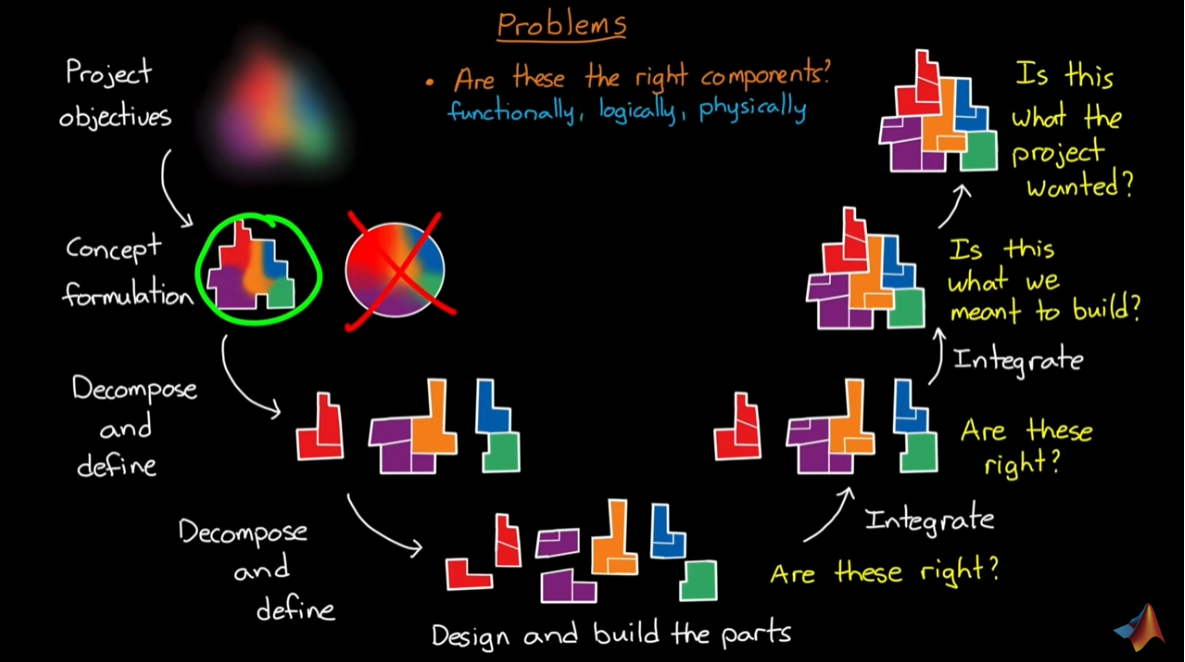 Problems
• Are these the right components?
functionally, logically, physically
Project
objectives
Concept
formulation
Decompose
and
define
Decompose
and
define
Design and build the parts
Are these right?
Integrate
Are these
right?
Integrate
Is this
what we
meant to build?
Is this
what the
project
wanted?